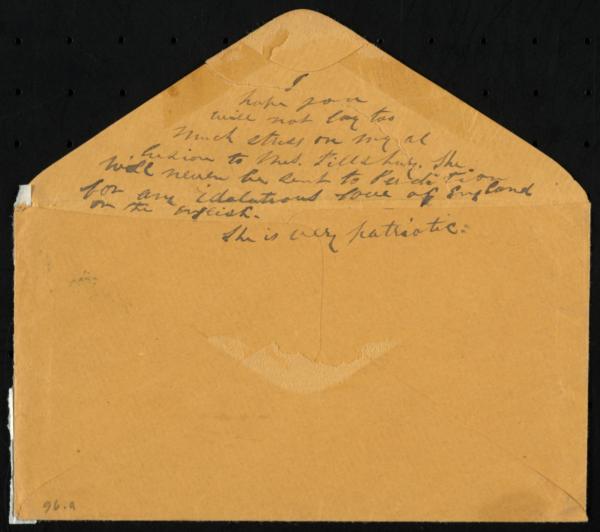 I
hope you
will not lay too
much stress on my al
lusion to Mrs. Pillsbury. She
will never be sent to Perdition
for any idolatrous love of England
or the English.
She is very patriotic.
96.a